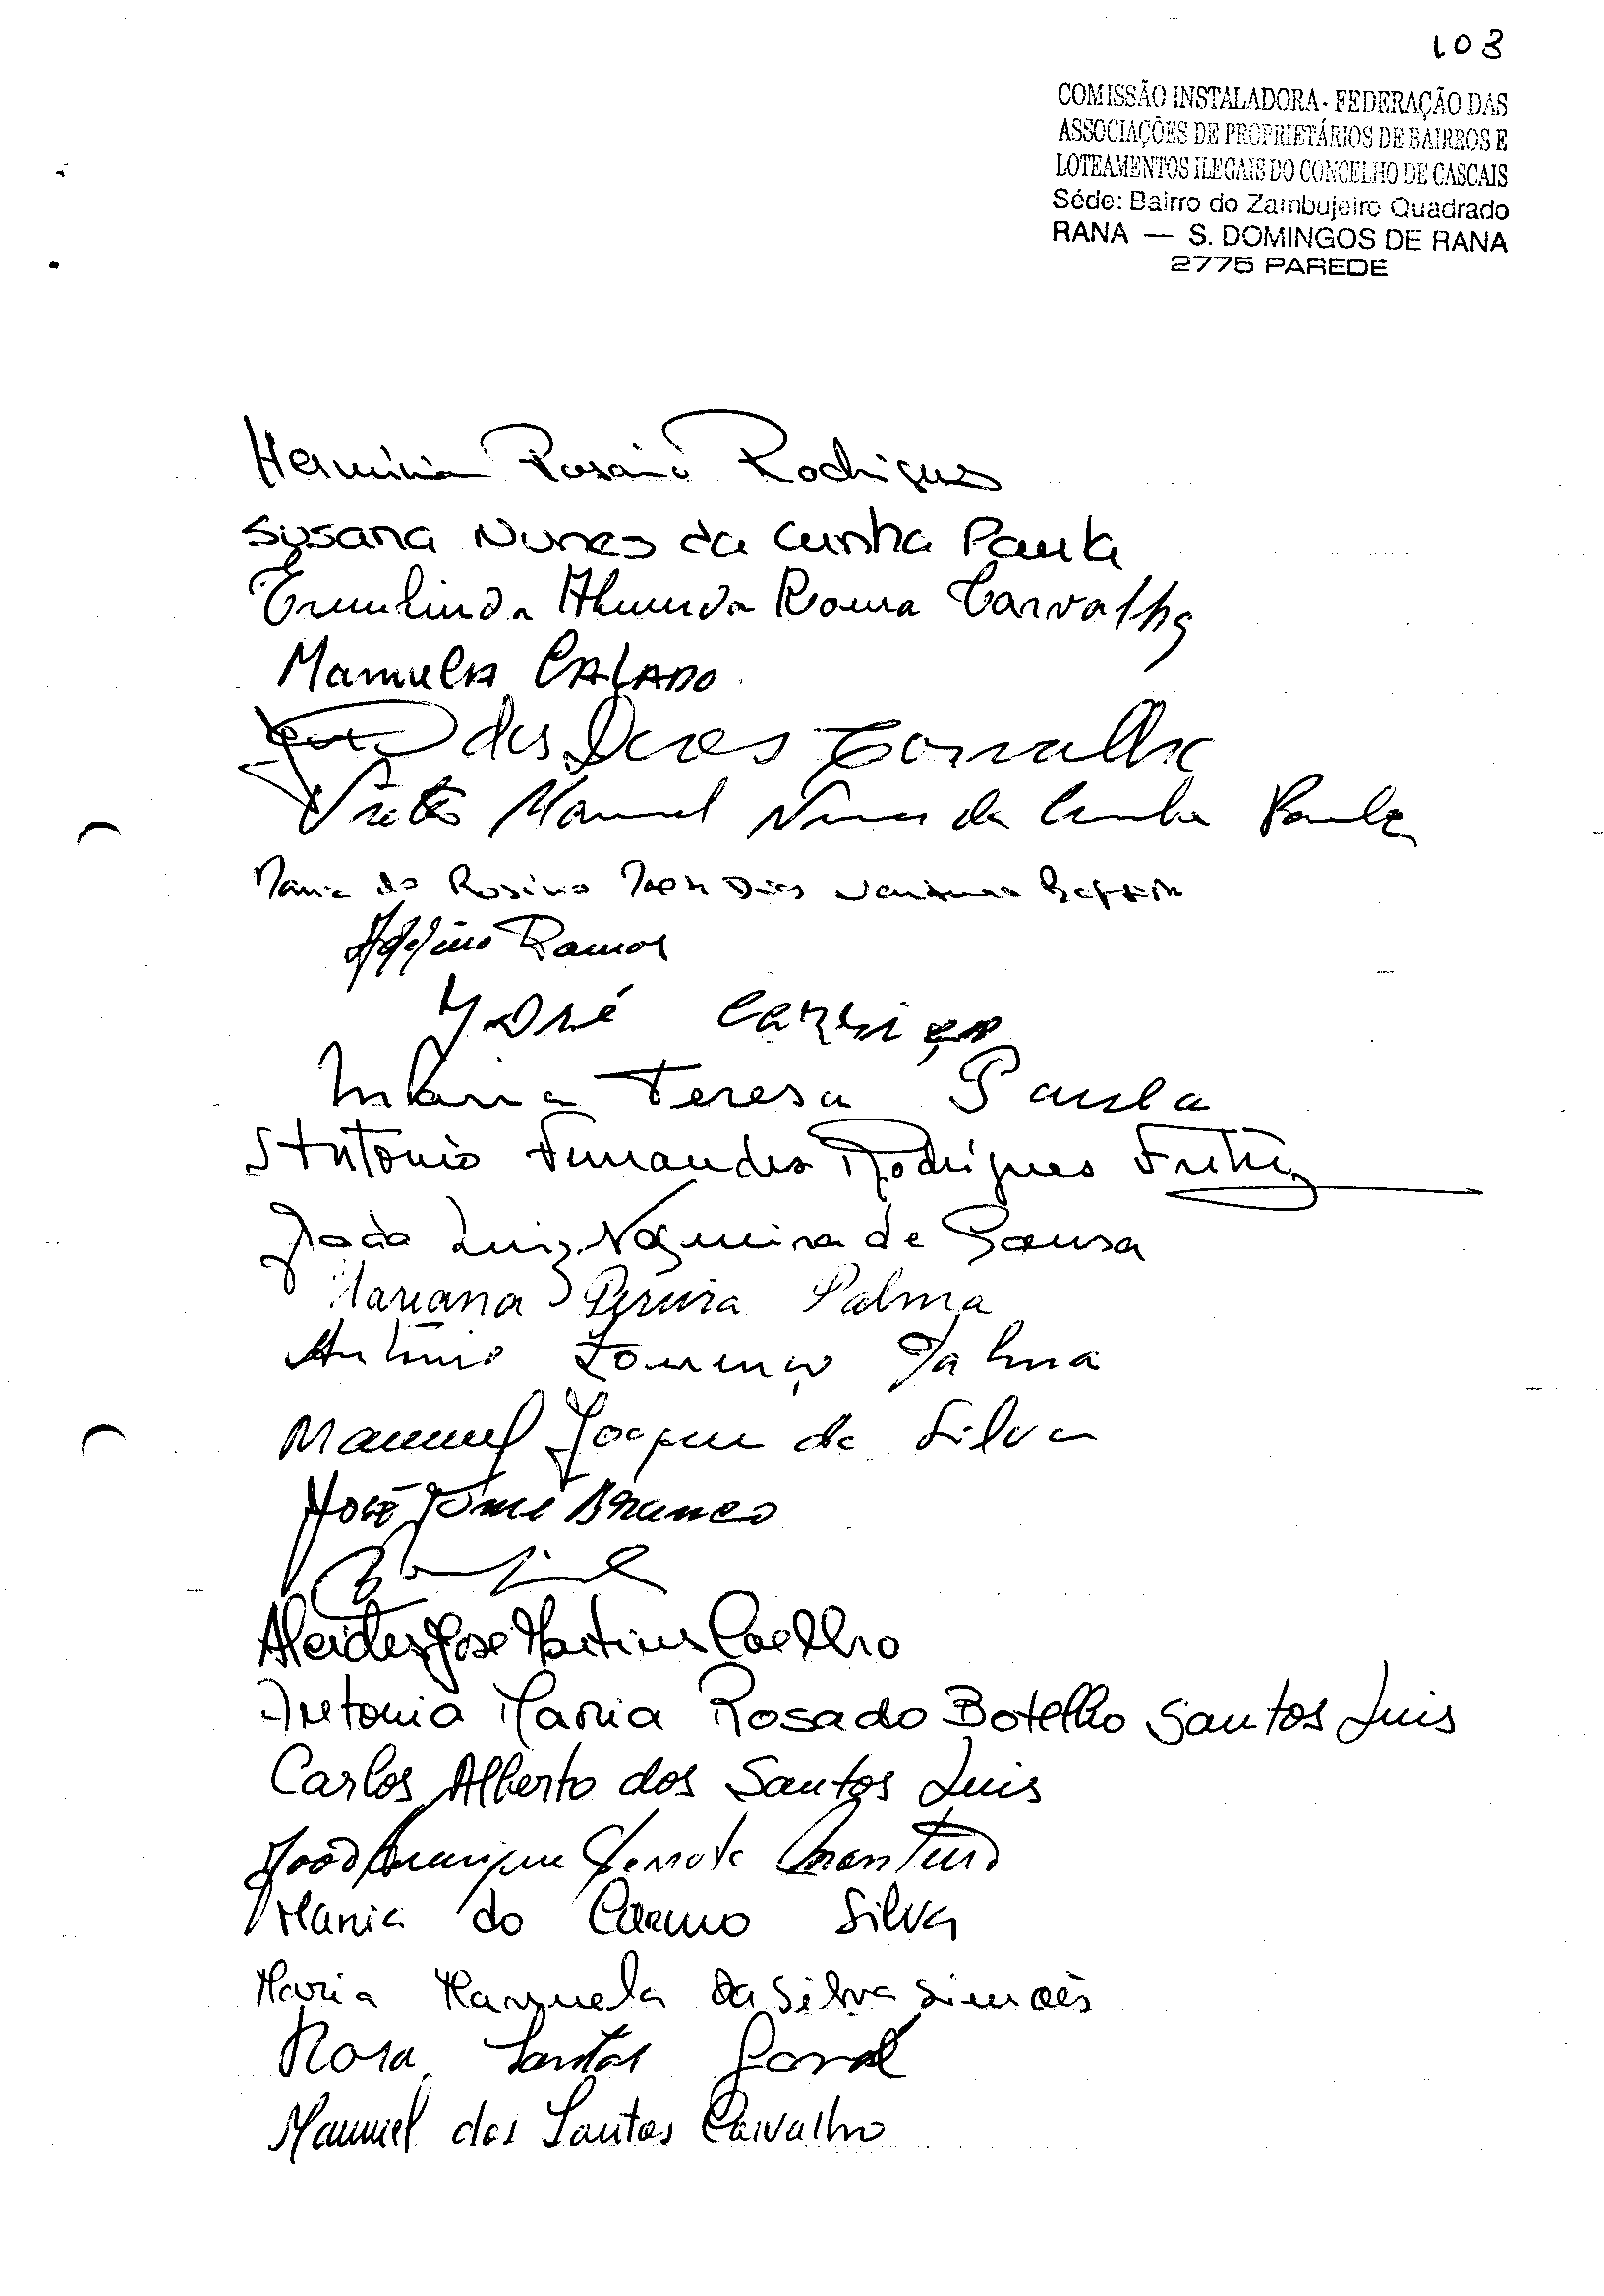 103
COMISSÃO INSTALADORA - FEDERAÇÃO DAS
ASSOCIAÇÕES DE PROPRIETÁRIOS DE BAIRROS E
LOTEAMENTOS ILEGAIS DO CONCELHO DE CASCAIS
Séde: Bairro do Zambujeiro Quadrado
RANA — S. DOMINGOS DE RANA
2775 PAREDE
Herminia Rosario Rodrigues
Susana Nunes da Cunha Paula
Ermelinda Almerda Roma Carvalho
Manuela CALADO
das Dores Carvalho
Manuel Nunes da Cunha Paula
Maria do Dias Baptista
Ramos
José Carriça
Maria Teresa Paula
António Fernandes Rodrigues
João Luiz Nogueira de Sousa
Mariana Pereira Palma
António Lourenço Palma
Manuel Joaquim da Silva
José Tomé Branco
Alcides José Martins Coelho
Antonia Maria Rosado Botelho Santos Luis
Carlos Alberto dos Santos Luis
João Henrique
Maria do Carmo Silva
Maria Manuela da Silva Simoẽs
Rosa Santos
Manuel dos Santos Carvalho